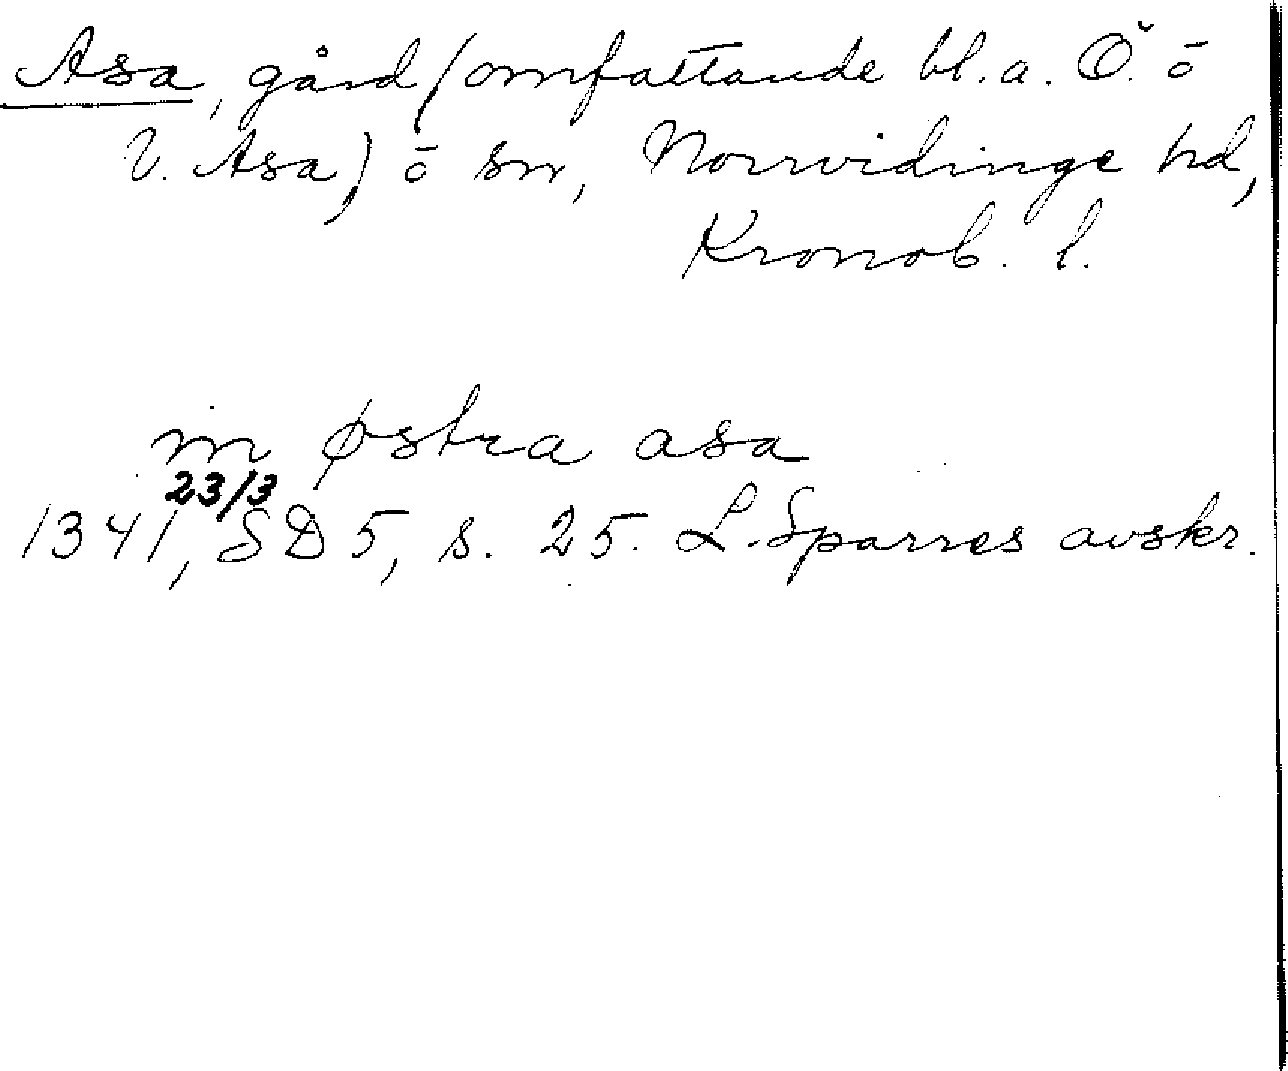 Asa, gård (omfattande bl.a. Ö. o
V. Asa) o sn, Norrvidinge hd,
Kronob. l.
in østra asa
23/3
1341, SD 5, s. 25. L. Sparres avskr.